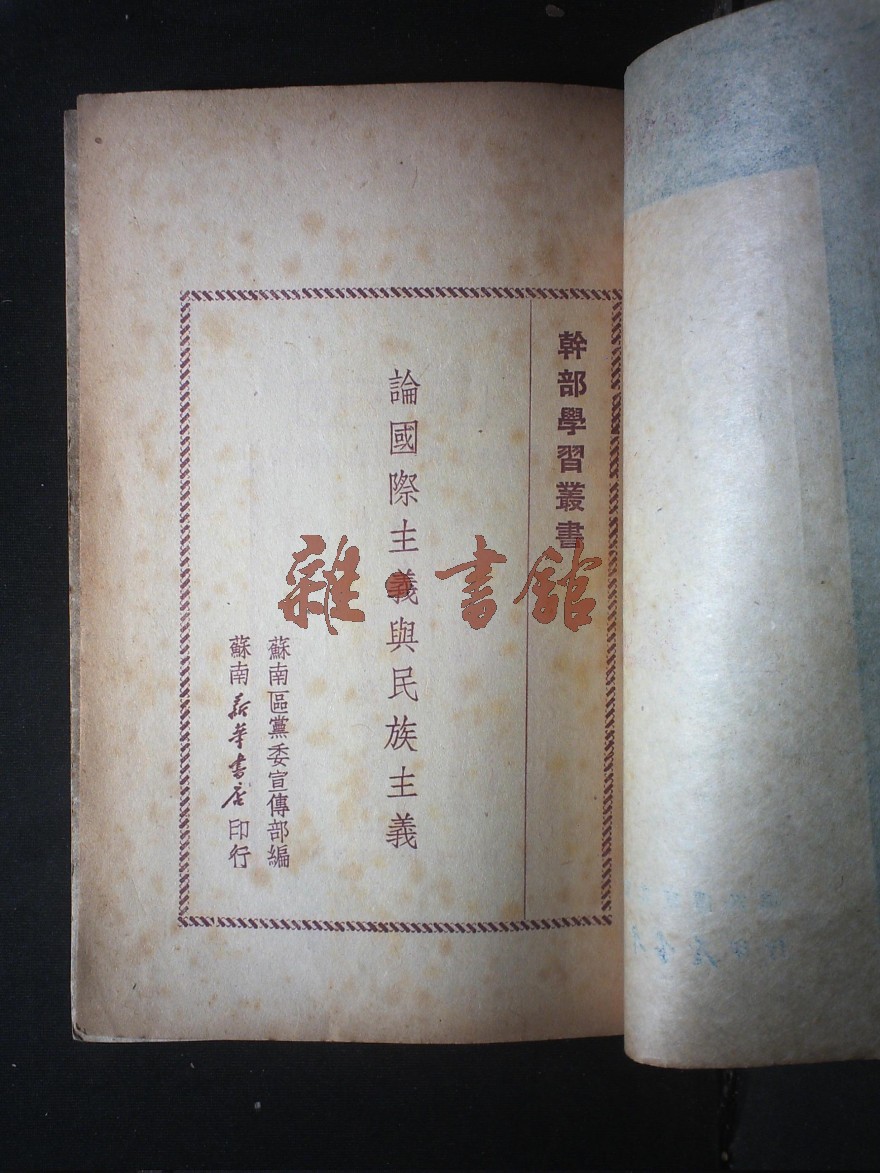 幹部學習叢書
論國際主義與民族主義
蘇南區黨委宣傳部編
蘇南新華書店印行
雜書館